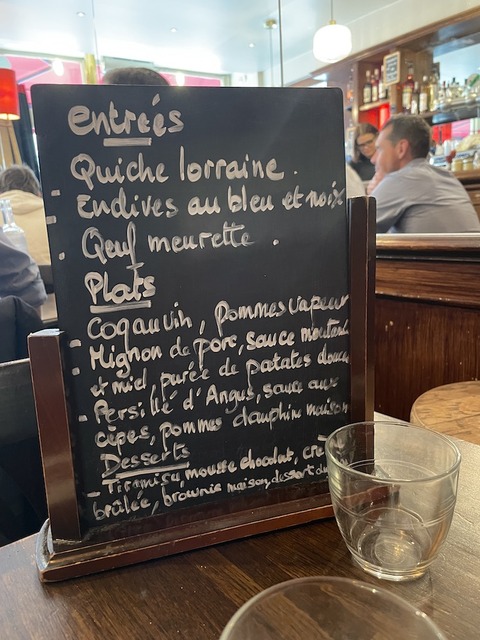 entrées
Quiche lorraine.
- Endives au bleu et noix
- Oeuf meurette.
Plats
- Coq au vin, pommes vapeur
- Mignon de porc, sauce moutarde
et miel, purée de patates douces
- Persillé d'Angus, sauce aux
cèpes, pommes dauphin maison
Desserts
- Tiramisu mousse chocolat, crè
brûlée, brownie maison, dessert du